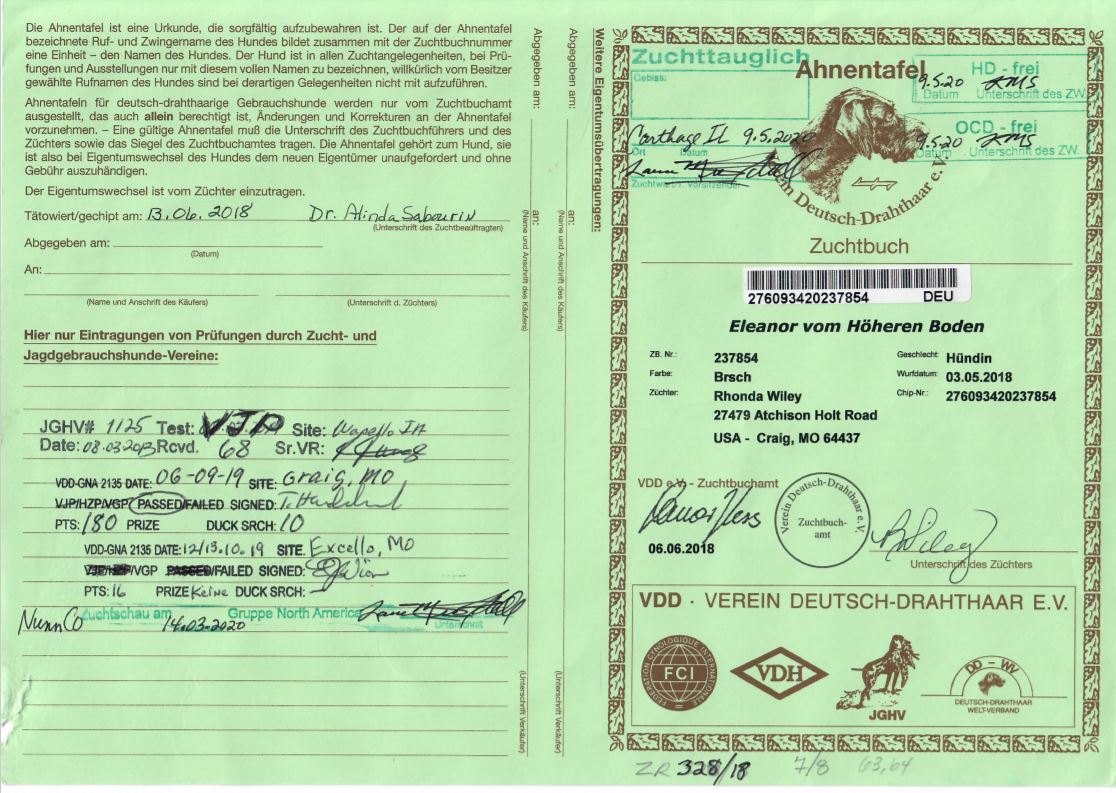 Die Ahnentafel ist eine Urkunde, die sorgfältig aufzubewahren ist. Der auf der Ahnentafel
bezeichnete Ruf- und Zwingername des Hundes bildet zusammen mit der Zuchtbuchnummer
eine Einheit – den Namen des Hundes. Der Hund ist in allen Zuchtangelegenheiten, bei Prü-
fungen und Ausstellungen nur mit diesem vollen Namen zu bezeichnen, willkürlich vom Besitzer
gewählte Rufnamen des Hundes sind bei derartigen Gelegenheiten nicht mit aufzuführen.
Ahnentafeln für deutsch-drahthaarige Gebrauchshunde werden nur vom Zuchtbuchamt
ausgestellt, das auch allein berechtigt ist, Änderungen und Korrekturen an der Ahnentafel
vorzunehmen. – Eine gültige Ahnentafel muß die Unterschrift des Zuchtbuchführers und des
Züchters sowie das Siegel des Zuchtbuchamtes tragen. Die Ahnentafel gehört zum Hund, sie
ist also bei Eigentumswechsel des Hundes dem neuen Eigentümer unaufgefordert und ohne
Gebühr auszuhändigen.
Der Eigentumswechsel ist vom Züchter einzutragen.
Tätowiert/gechipt am: 13.06.2018 Dr. Alinda Sabourin
(Unterschrift des Zuchtbeauftragten)
Abgegeben am:
(Datum)
An:
(Name und Anschrift des Käufers) (Unterschrift d. Züchters)
Hier nur Eintragungen von Prüfungen durch Zucht- und
Jagdgebrauchshunde-Vereine:
JGHV# 1125 Test: VJP Site: Wapello IA
Date: 08.03.2013 Rcvd. 68 Sr.VR:
VDD-GNA 2135 DATE: 06-09-19 SITE: Graig, MO
VJP/HZP/VGP PASSED/FAILED SIGNED:
PTS: 180 PRIZE DUCK SRCH: 10
VDD-GNA 2135 DATE: 12/13.10.19 SITE. Excello, MO
VJP/HZP/VGP PASSED/FAILED SIGNED:
PTS: 16 PRIZE Keine DUCK SRCH: —
Nunn Co Zuchtschau am 14.03.2020 Gruppe North America
Unterschrift
Abgegeben am: an:
(Name und Anschrift des Käufers)
(Unterschrift Verkäufer)
Abgegeben am: an:
(Name und Anschrift des Käufers)
(Unterschrift Verkäufer)
Weitere Eigentumsübertragungen:
Zuchttauglich
Gebiss:
Carthage IL 9.5.2020
Ort Datum
Zuchtwart/1. Vorsitzender
Ahnentafel
HD - frei
9.5.20
Datum Unterschrift des ZW
OCD - frei
9.5.20
Datum Unterschrift des ZW.
Verein Deutsch-Drahthaar e.V.
Zuchtbuch
276093420237854 DEU
Eleanor vom Höheren Boden
ZB. Nr.: 237854 Geschlecht: Hündin
Farbe: Brsch Wurfdatum: 03.05.2018
Züchter: Rhonda Wiley Chip-Nr.: 276093420237854
27479 Atchison Holt Road
USA - Craig, MO 64437
VDD e.V. - Zuchtbuchamt
06.06.2018
Verein Deutsch-Drahthaar e.V.
Zuchtbuch-
amt
Unterschrift des Züchters
VDD · VEREIN DEUTSCH-DRAHTHAAR E.V.
FEDERATION CYNOLOGIQUE INTERNATIONALE
FCI
VDH
JGHV
DD – WV
DEUTSCH-DRAHTHAAR
WELT-VERBAND
ZR 328/18 7/8 63,64